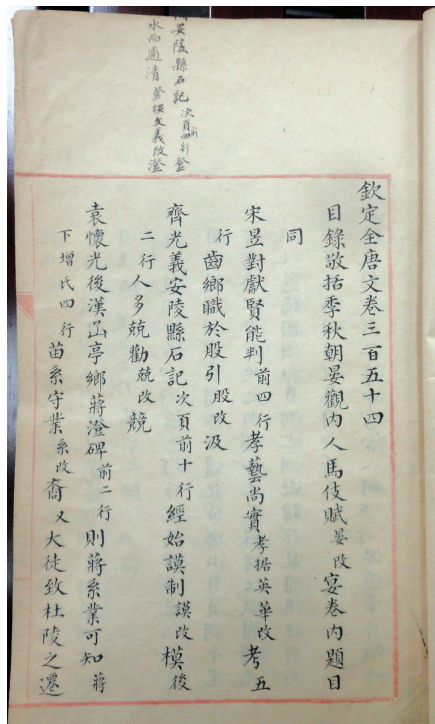 安陵縣石記次頁前四行登
水而適清登據文義改澄
欽定全唐文卷三百五十四
目錄敬括季秋朝晏觀內人馬伎賦晏改宴卷內題目
同
宋昱對獻賢能判前四行孝藝尚實孝据英華改考五
行齒鄉職於股引股改汲
齊光義安陵縣石記次頁前十行經始謨制謨改模後
二行人多兢勸兢改競
袁懷光後漢㔽亭鄉蔣澄碑前二行則蔣系業可知蔣
下增氏四行苗系守業系改裔又大徒致杜陵之遷